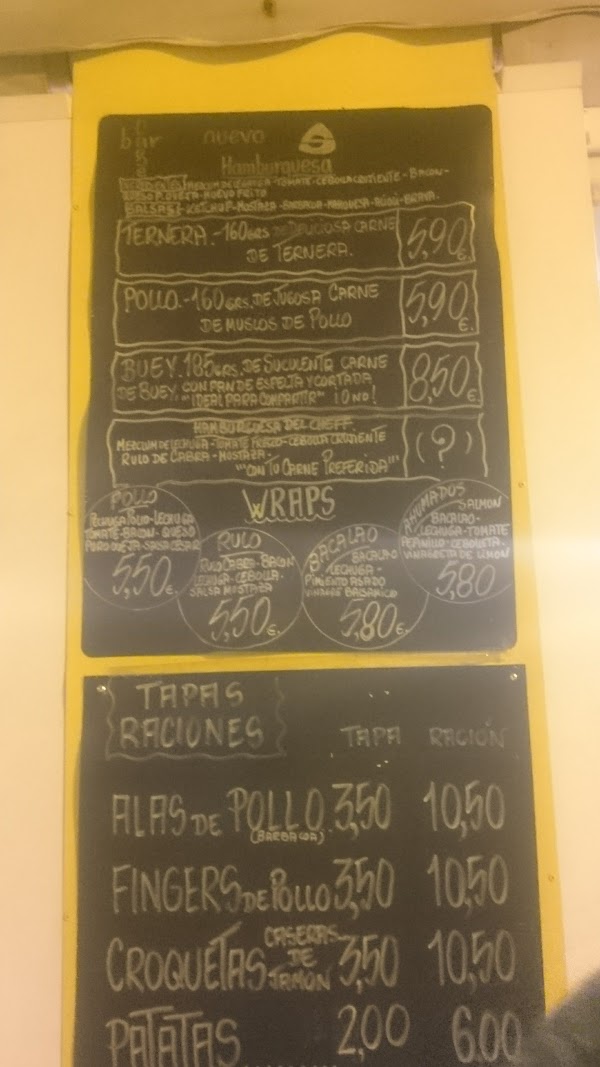 bar
nuevo
Hamburguesa
MEZCLUM DE LECHUGA - TOMATE - CEBOLLA CRUJIENTE - BACON -
QUESO P. OVEJA - HUEVO FRITO
SALSAS: KETCHUP - MOSTAZA - BARBACOA - MAHONESA - ALIOLI - BRAVA.
TERNERA. - 160 GRS. DE DELICIOSA CARNE
DE TERNERA.
5,90 €.
POLLO. - 160 GRS. DE JUGOSA CARNE
DE MUSLOS DE POLLO
5,90 €.
BUEY. 185 GRS. DE SUCULENTA CARNE
DE BUEY, CON PAN DE ESPELTA Y CORTADA
""IDEAL PARA COMPARTIR"" ¡O NO!
8,50 €.
HAMBURGUESA DEL CHEFF.
MEZCLUM DE LECHUGA - TOMATE FRESCO - CEBOLLA CRUJIENTE
RULO DE CABRA - MOSTAZA -
""CON TU CARNE PREFERIDA""
(?)
WRAPS
POLLO
PECHUGA POLLO - LECHUGA
TOMATE - BACON - QUESO
PURO OVEJA - SALSA CÉSAR
5,50 €.
RULO
RULO CABRA - BACON
LECHUGA - CEBOLLA -
SALSA MOSTAZA
5,50 €.
BACALAO
BACALAO
LECHUGA -
PIMIENTO ASADO
VINAGRE BALSAMICO
5,80 €.
AHUMADOS
SALMON
BACALAO -
LECHUGA - TOMATE
PEPINILLO - CEBOLLETA -
VINAGRETA DE LIMON
5,80
TAPAS
RACIONES
TAPA RACIÓN
ALAS DE POLLO 3,50 10,50
(BARBACOA)
FINGERS DE POLLO 3,50 10,50
CROQUETAS CASERAS DE JAMÓN 3,50 10,50
PATATAS 2,00 6,00